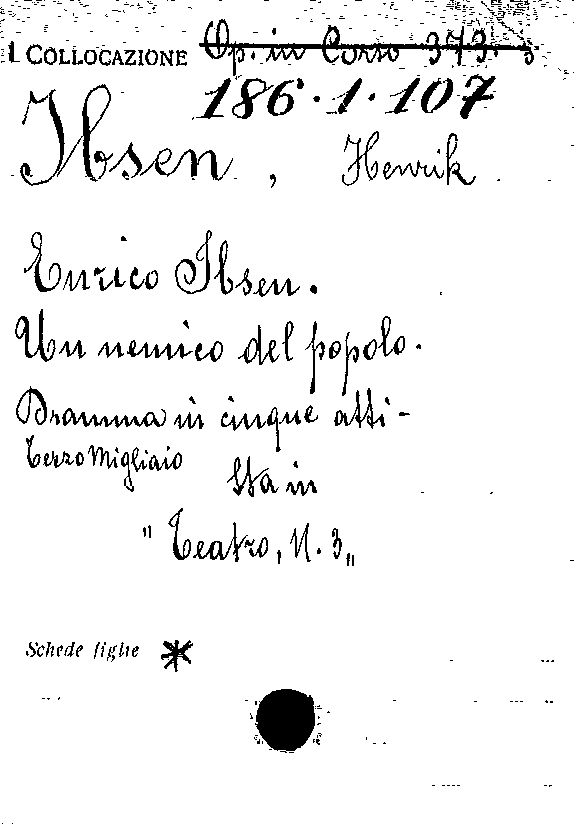 COLLOCAZIONE Op. in Corso 373. 3
186.1.107
Ibsen, Henrik
Enrico Ibsen.
Un nemico del popolo.
Dramma in cinque atti -
Terzo Migliaio
Sta in
"Teatro, N. 3„
Schede figlie *